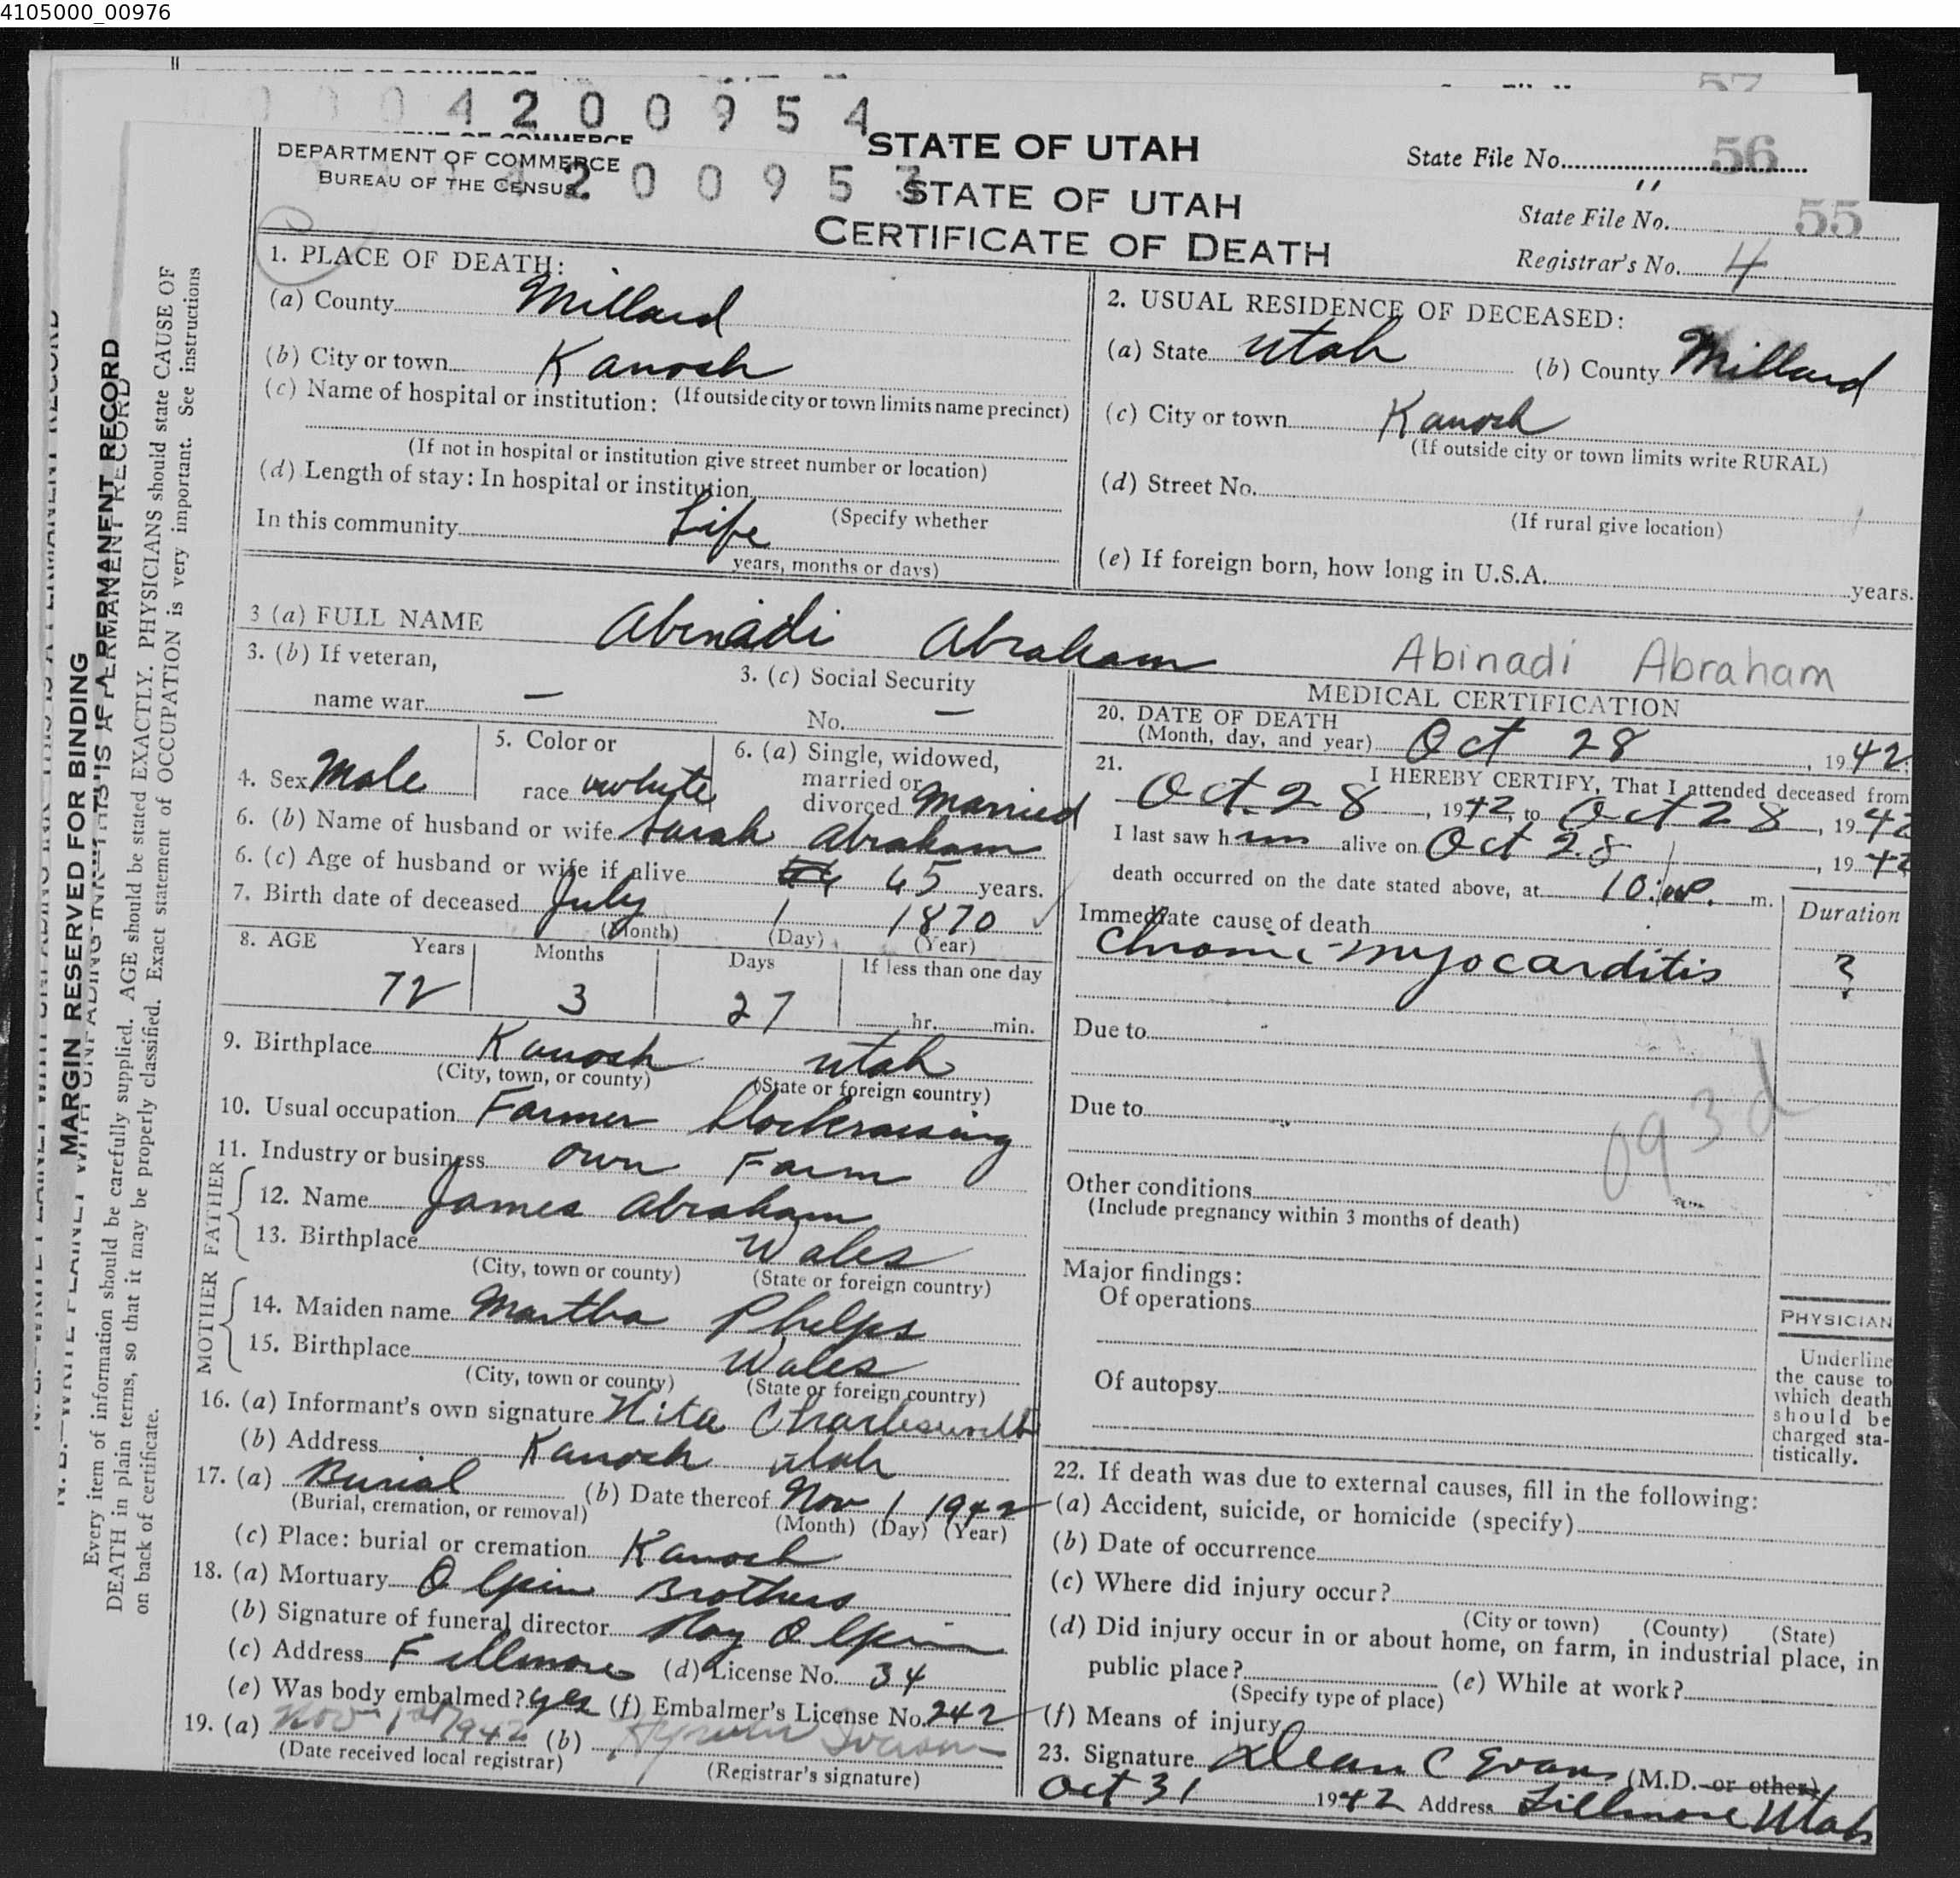 4105000_00976
57
4 2 0 0 9 5 4
STATE OF UTAH
State File No. 56
DEPARTMENT OF COMMERCE
BUREAU OF THE CENSUS
2 0 0 9 5 3
STATE OF UTAH
CERTIFICATE OF DEATH
State File No. 55
Registrar's No. 4
MARGIN RESERVED FOR BINDING
Every item of information should be carefully supplied. AGE should be stated EXACTLY. PHYSICIANS should state CAUSE OF
DEATH in plain terms, so that it may be properly classified. Exact statement of OCCUPATION is very important. See instructions
on back of certificate.
1. PLACE OF DEATH:
(a) County Millard
(b) City or town Kanosh
(c) Name of hospital or institution: (If outside city or town limits name precinct)
(If not in hospital or institution give street number or location)
(d) Length of stay: In hospital or institution
(Specify whether
In this community Life
years, months or days)
2. USUAL RESIDENCE OF DECEASED:
(a) State Utah (b) County Millard
(c) City or town Kanosh
(If outside city or town limits write RURAL)
(d) Street No.
(If rural give location)
(e) If foreign born, how long in U.S.A. years.
3 (a) FULL NAME Abenadi Abraham Abinadi Abraham
3. (b) If veteran,
name war —
3. (c) Social Security
No. —
4. Sex Male
5. Color or
race white
6. (a) Single, widowed,
married or
divorced Married
6. (b) Name of husband or wife Sarah Abraham
6. (c) Age of husband or wife if alive 65 years.
7. Birth date of deceased July 1 1870
(Month) (Day) (Year)
8. AGE Years Months Days If less than one day
72 3 27 hr. min.
9. Birthplace Kanosh Utah
(City, town, or county) (State or foreign country)
10. Usual occupation Farmer Stockraising
11. Industry or business own Farm
FATHER
12. Name James Abraham
13. Birthplace Wales
(City, town or county) (State or foreign country)
MOTHER
14. Maiden name Martha Phelps
15. Birthplace Wales
(City, town or county) (State or foreign country)
16. (a) Informant's own signature Nita Charlesworth
(b) Address Kanosh Utah
17. (a) Burial (b) Date thereof Nov 1 1942
(Burial, cremation, or removal) (Month) (Day) (Year)
(c) Place: burial or cremation Kanosh
18. (a) Mortuary Olpin Brothers
(b) Signature of funeral director Roy Olpin
(c) Address Fillmore (d) License No. 34
(e) Was body embalmed? yes (f) Embalmer's License No. 242
19. (a) Nov 1st 1942 (b) Iverson
(Date received local registrar) (Registrar's signature)
MEDICAL CERTIFICATION
20. DATE OF DEATH
(Month, day, and year) Oct 28, 1942
21. I HEREBY CERTIFY, That I attended deceased from
Oct 28, 1942, to Oct 28, 1942
I last saw him alive on Oct 28, 1942
death occurred on the date stated above, at 10:00 P. m.
Immediate cause of death Duration
Chronic myocarditis ?
Due to
Due to
093d
Other conditions
(Include pregnancy within 3 months of death)
Major findings:
Of operations
Of autopsy
PHYSICIAN
Underline
the cause to
which death
should be
charged sta-
tistically.
22. If death was due to external causes, fill in the following:
(a) Accident, suicide, or homicide (specify)
(b) Date of occurrence
(c) Where did injury occur?
(City or town) (County) (State)
(d) Did injury occur in or about home, on farm, in industrial place, in
public place? (e) While at work?
(Specify type of place)
(f) Means of injury
23. Signature Dean C Evans (M.D. or other)
Oct 31 1942 Address Fillmore Utah